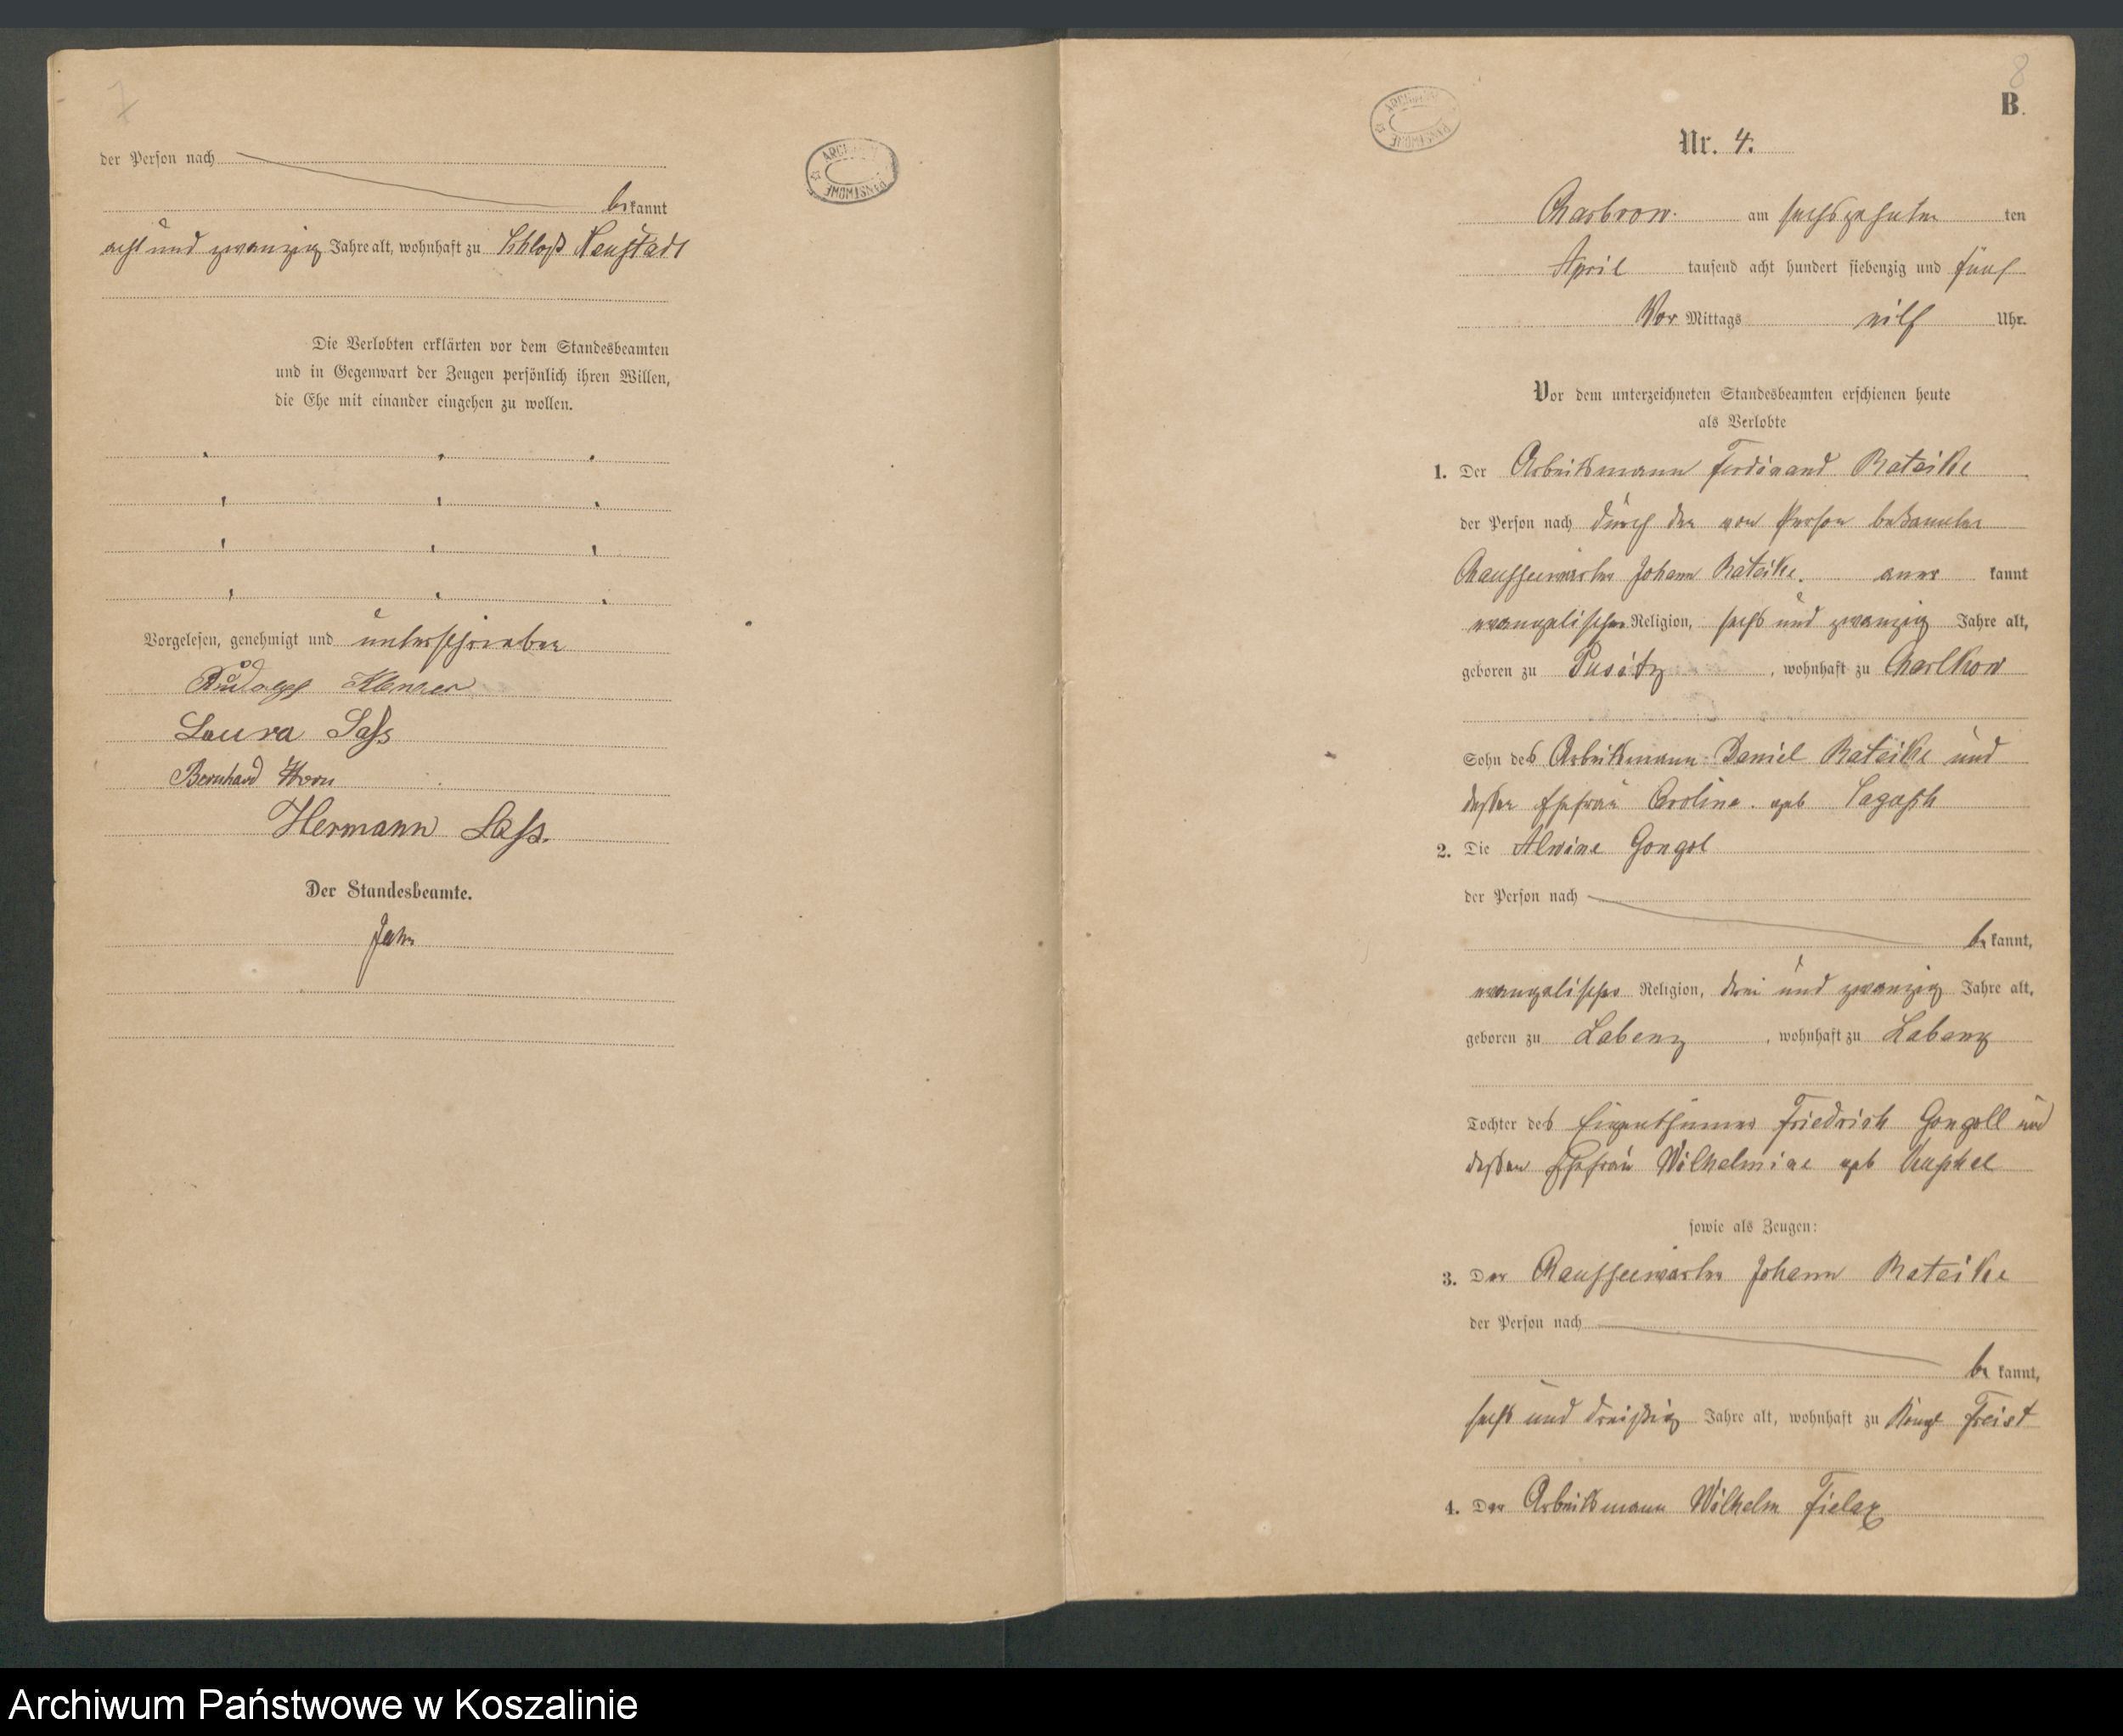 7
der Person nach
bekannt
acht und zwanzig Jahre alt, wohnhaft zu Schloß Neustadt
Die Verlobten erklärten vor dem Standesbeamten
und in Gegenwart der Zeugen persönlich ihren Willen,
die Ehe mit einander eingehen zu wollen.
Vorgelesen, genehmigt und unterschrieben
Rudolph
Laura Sass
Bernhard Horn
Hermann Sass.
Der Standesbeamte.
ARCHIWUM PAŃSTWOWE
8
B.
ARCHIWUM PAŃSTWOWE
Nr. 4.
Charbrow. am sechszehnten ten
April tausend acht hundert siebenzig und fünf
Vor Mittags eilf Uhr.
Vor dem unterzeichneten Standesbeamten erschienen heute
als Verlobte
1. Der Arbeitsmann Ferdinand Rateike
der Person nach durch den von Person bekannten
Chausseewärter Johann Rateike. aner kannt
evangelischer Religion, sechs und zwanzig Jahre alt,
geboren zu Pusitz, wohnhaft zu Charlkow
Sohn des Arbeitsmann Daniel Rateike und
dessen Ehefrau Caroline. geb
2. Die Alwine Gongol
der Person nach
bekannt,
evangelischer Religion, drei und zwanzig Jahre alt,
geboren zu Labenz, wohnhaft zu Labenz
Tochter des Eigenthümer Friedrich Gongoll und
dessen Ehefrau Wilhelmine geb
sowie als Zeugen:
3. Der Chausseewärter Johann Rateike
der Person nach
be kannt,
sechs und dreißig Jahre alt, wohnhaft zu Königl Freist
4. Der Arbeitsmann Wilhelm Fielaz
Archiwum Państwowe w Koszalinie